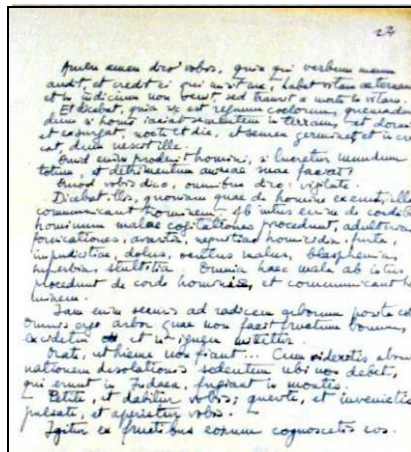 23
Amen amen dico vobis, quia qui verbum meum
audit, et credit ei qui misit me, habet vitam aeternam
et in iudicium non venit, sed transit a morte in vitam.
Et dicebat, quia sic est regnum coelorum, quemad
dum si homo iaciat sementem in terram, et dorm
et exsurgat, nocte et die, et semen germinet, et in cre
cat, dum nescit ille.
Quid enim proderit homini, si lucretur mundum
totum, et detrimentum animae suae faciat?
Quod vobis dico, omnibus dico: vigilate.
Dicebat illis, quoniam quae de homine exeunt, illa
communicant hominem. Ab intus enim de corde
hominum malae cogitationes procedunt, adulteria
fornicationes, avaritia, nequitiae homicidia, furta,
impudicitiae, dolus, oculus malus, blasphemia,
superbia, stultitia. Omnia haec mala ab intus
procedunt de corde hominis, et communicant ho
minem.
Iam enim securis ad radicem arborum posita est
Omnis ergo arbor quae non facit fructum bonum,
excidetur et in ignem mittetur.
Orate, ut hieme non fiant... Cum videretis abomi
nationem desolationis sedentem ubi non debet,
qui erunt in Iudaea, fugiant in montis.
Petite, et dabitur vobis; querite, et invenietis
pulsate, et aperietur vobis.
Igitur ex fructibus eorum cognoscetis eos.